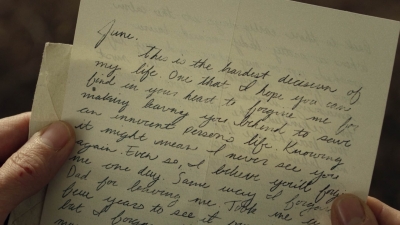 June.
This is the hardest decision of
my life. One that I hope you can
find in your heart to forgive me for
making leaving you behind to save
an innocent persons life. Knowing
it might mean I never see you
again. Even so, I believe you'll
me one day. Same way I forgave
Dad for leaving me. Took me
years to see it
but I